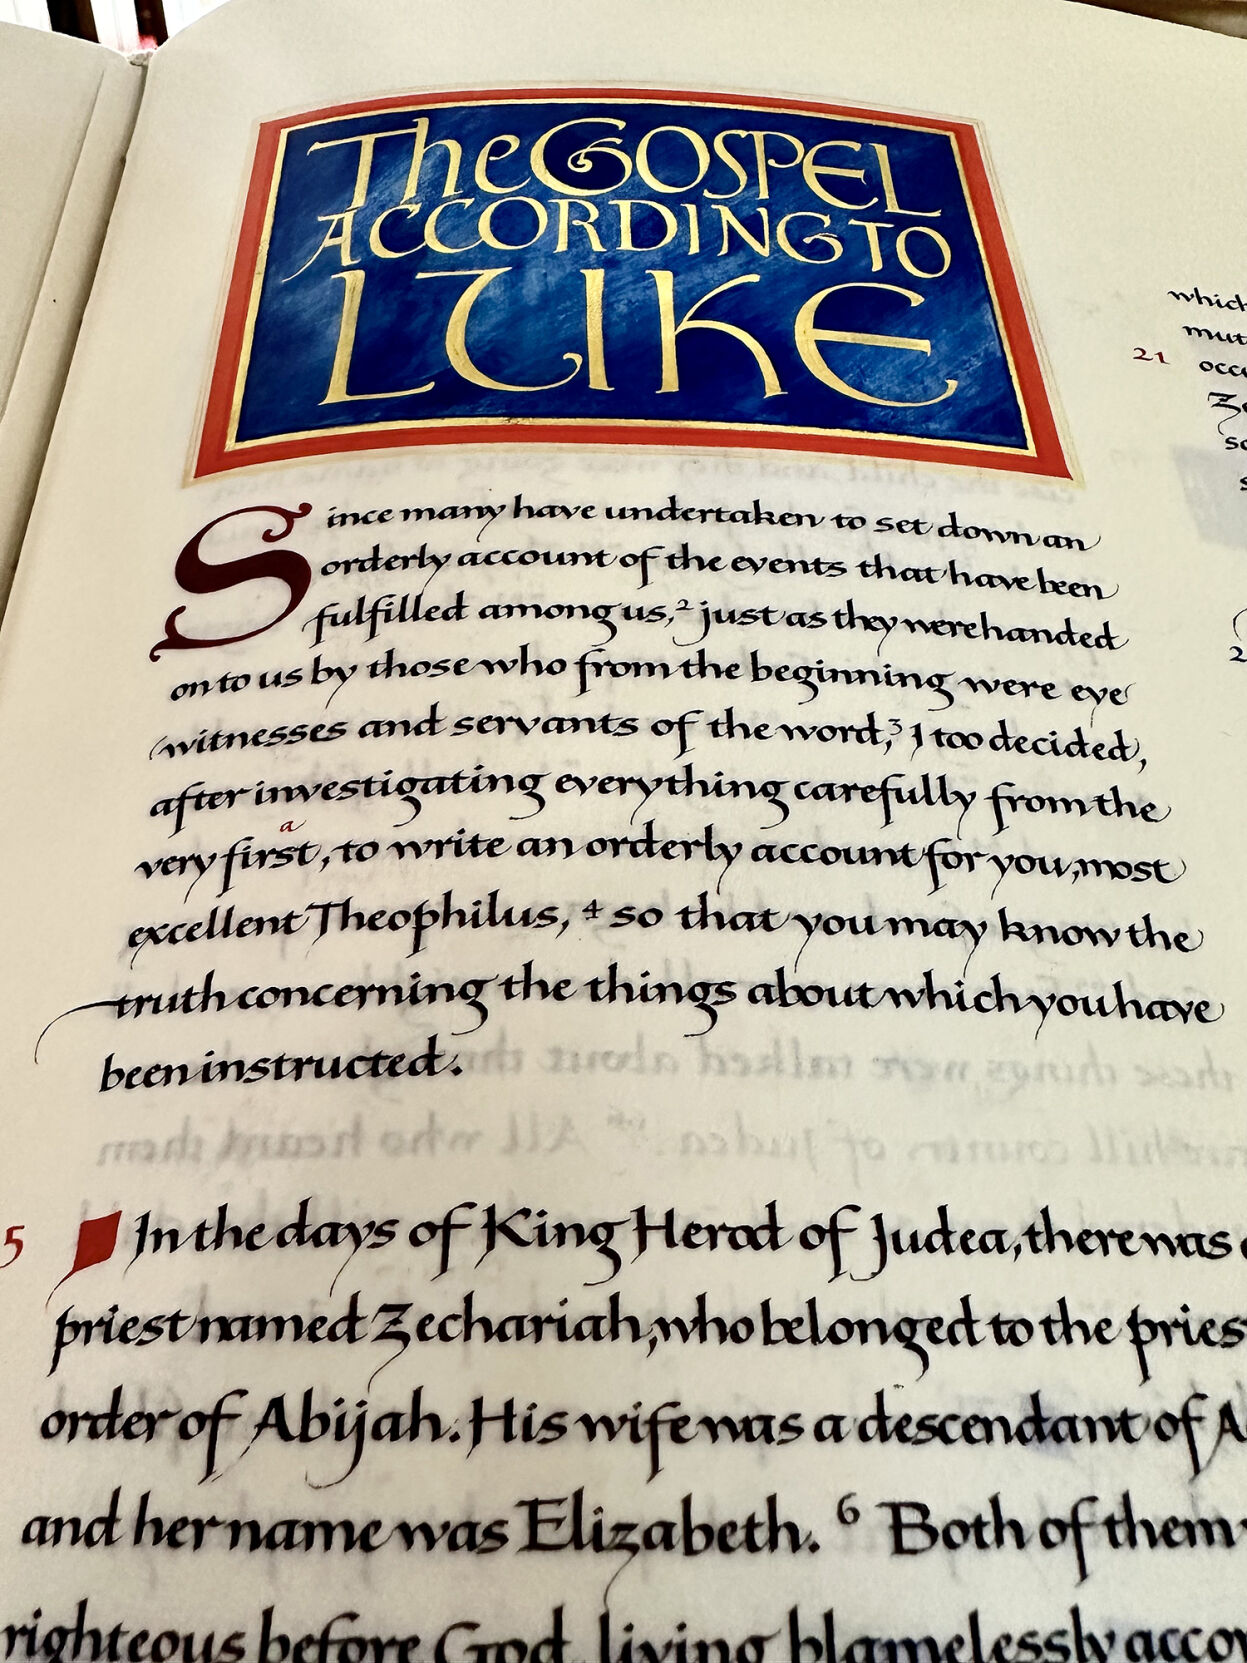 The GOSPEL
ACCORDING TO
LUKE
Since many have undertaken to set down an
orderly account of the events that have been
fulfilled among us, 2 just as they were handed
on to us by those who from the beginning were eye
witnesses and servants of the word, 3 I too decided,
after investigating everything carefully from the
very first, a to write an orderly account for you, most
excellent Theophilus, 4 so that you may know the
truth concerning the things about which you have
been instructed.
5 In the days of King Herod of Judea, there was
priest named Zechariah, who belonged to the
order of Abijah. His wife was a descendant of
and her name was Elizabeth. 6 Both of them
righteous before God, living blamelessly
which
21